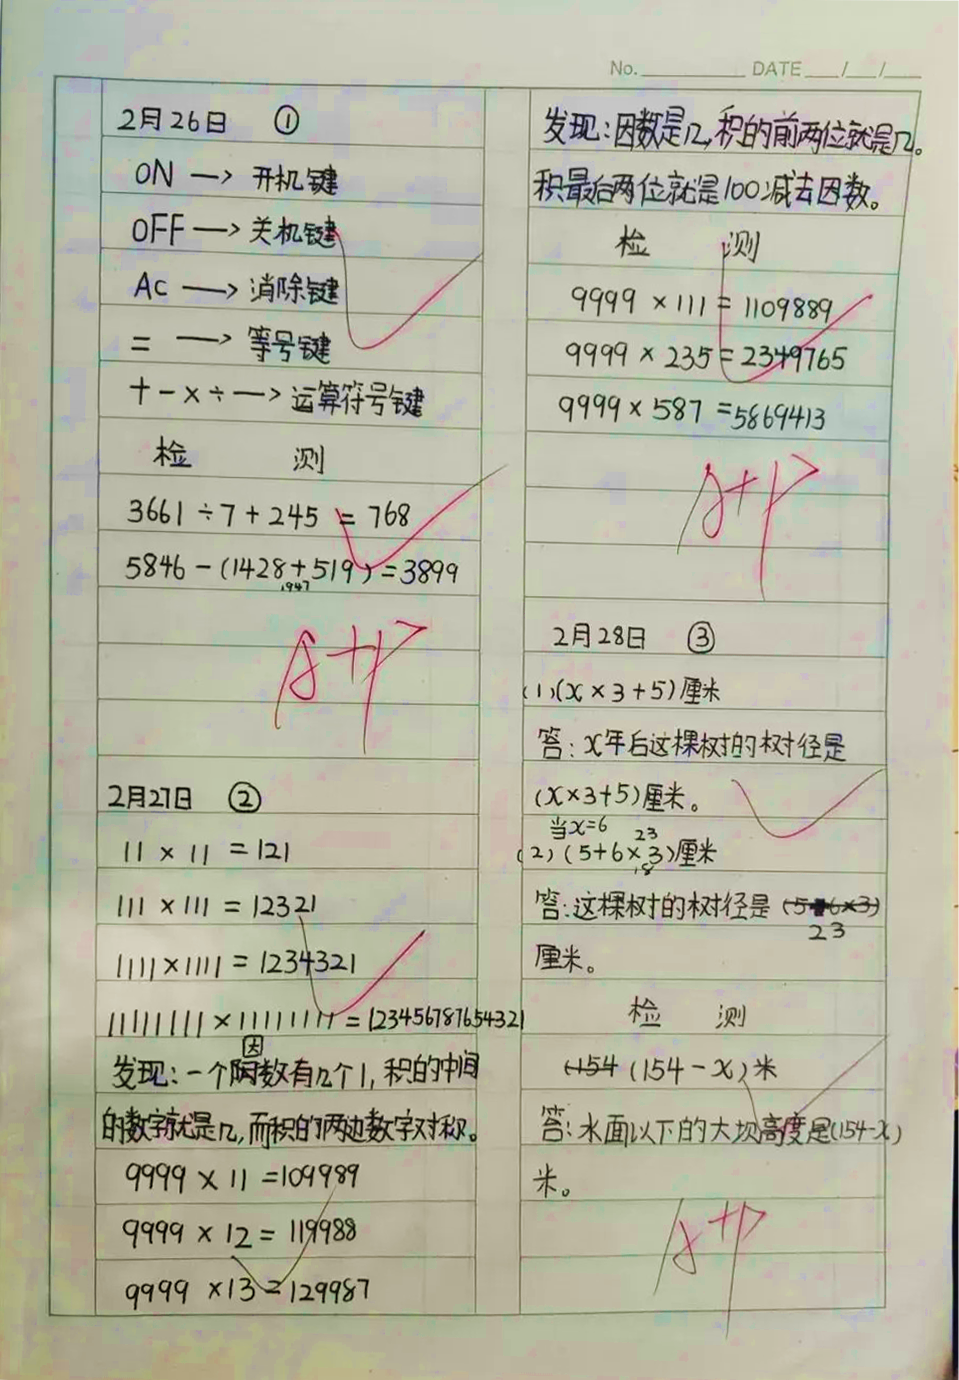 No. DATE / /
2月26日 ①
ON → 开机键
OFF → 关机键
Ac → 消除键
= → 等号键
+ - × ÷ → 运算符号键
检 测
3661 ÷ 7 + 245 = 768
5846 - (1428 + 519) = 3899
1947
A+
2月27日 ②
11 × 11 = 121
111 × 111 = 12321
1111 × 1111 = 1234321
11111111 × 11111111 = 123456787654321
因
发现：一个数有几个1，积的中间
的数字就是几，而积的两边数字对称。
9999 × 11 = 109989
9999 × 12 = 119988
9999 × 13 = 129987
发现：因数是几，积的前两位就是几。
积最后两位就是100减去因数。
检 测
9999 × 111 = 1109889
9999 × 235 = 2349765
9999 × 587 = 5869413
A+
2月28日 ③
(1)(x × 3 + 5)厘米
答：x年后这棵树的树径是
(x×3+5)厘米。
当x=6 23
(2)(5+6×3)厘米
18
答：这棵树的树径是 (5+6×3)
23
厘米。
检 测
(154 (154-x)米
答：水面以下的大坝高度是(154-x)
米。
A+